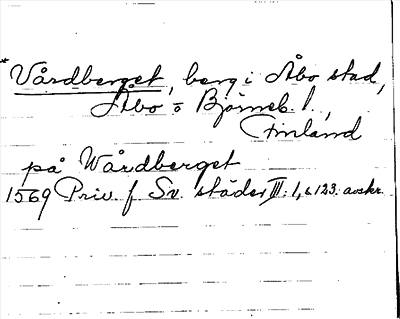 * Vårdberget, berg i Åbo stad,
Åbo o Björneb l.,
Finland
på Wårdberget
1569 Priv. f Sv. städer III: 1, s. 123. avskr.